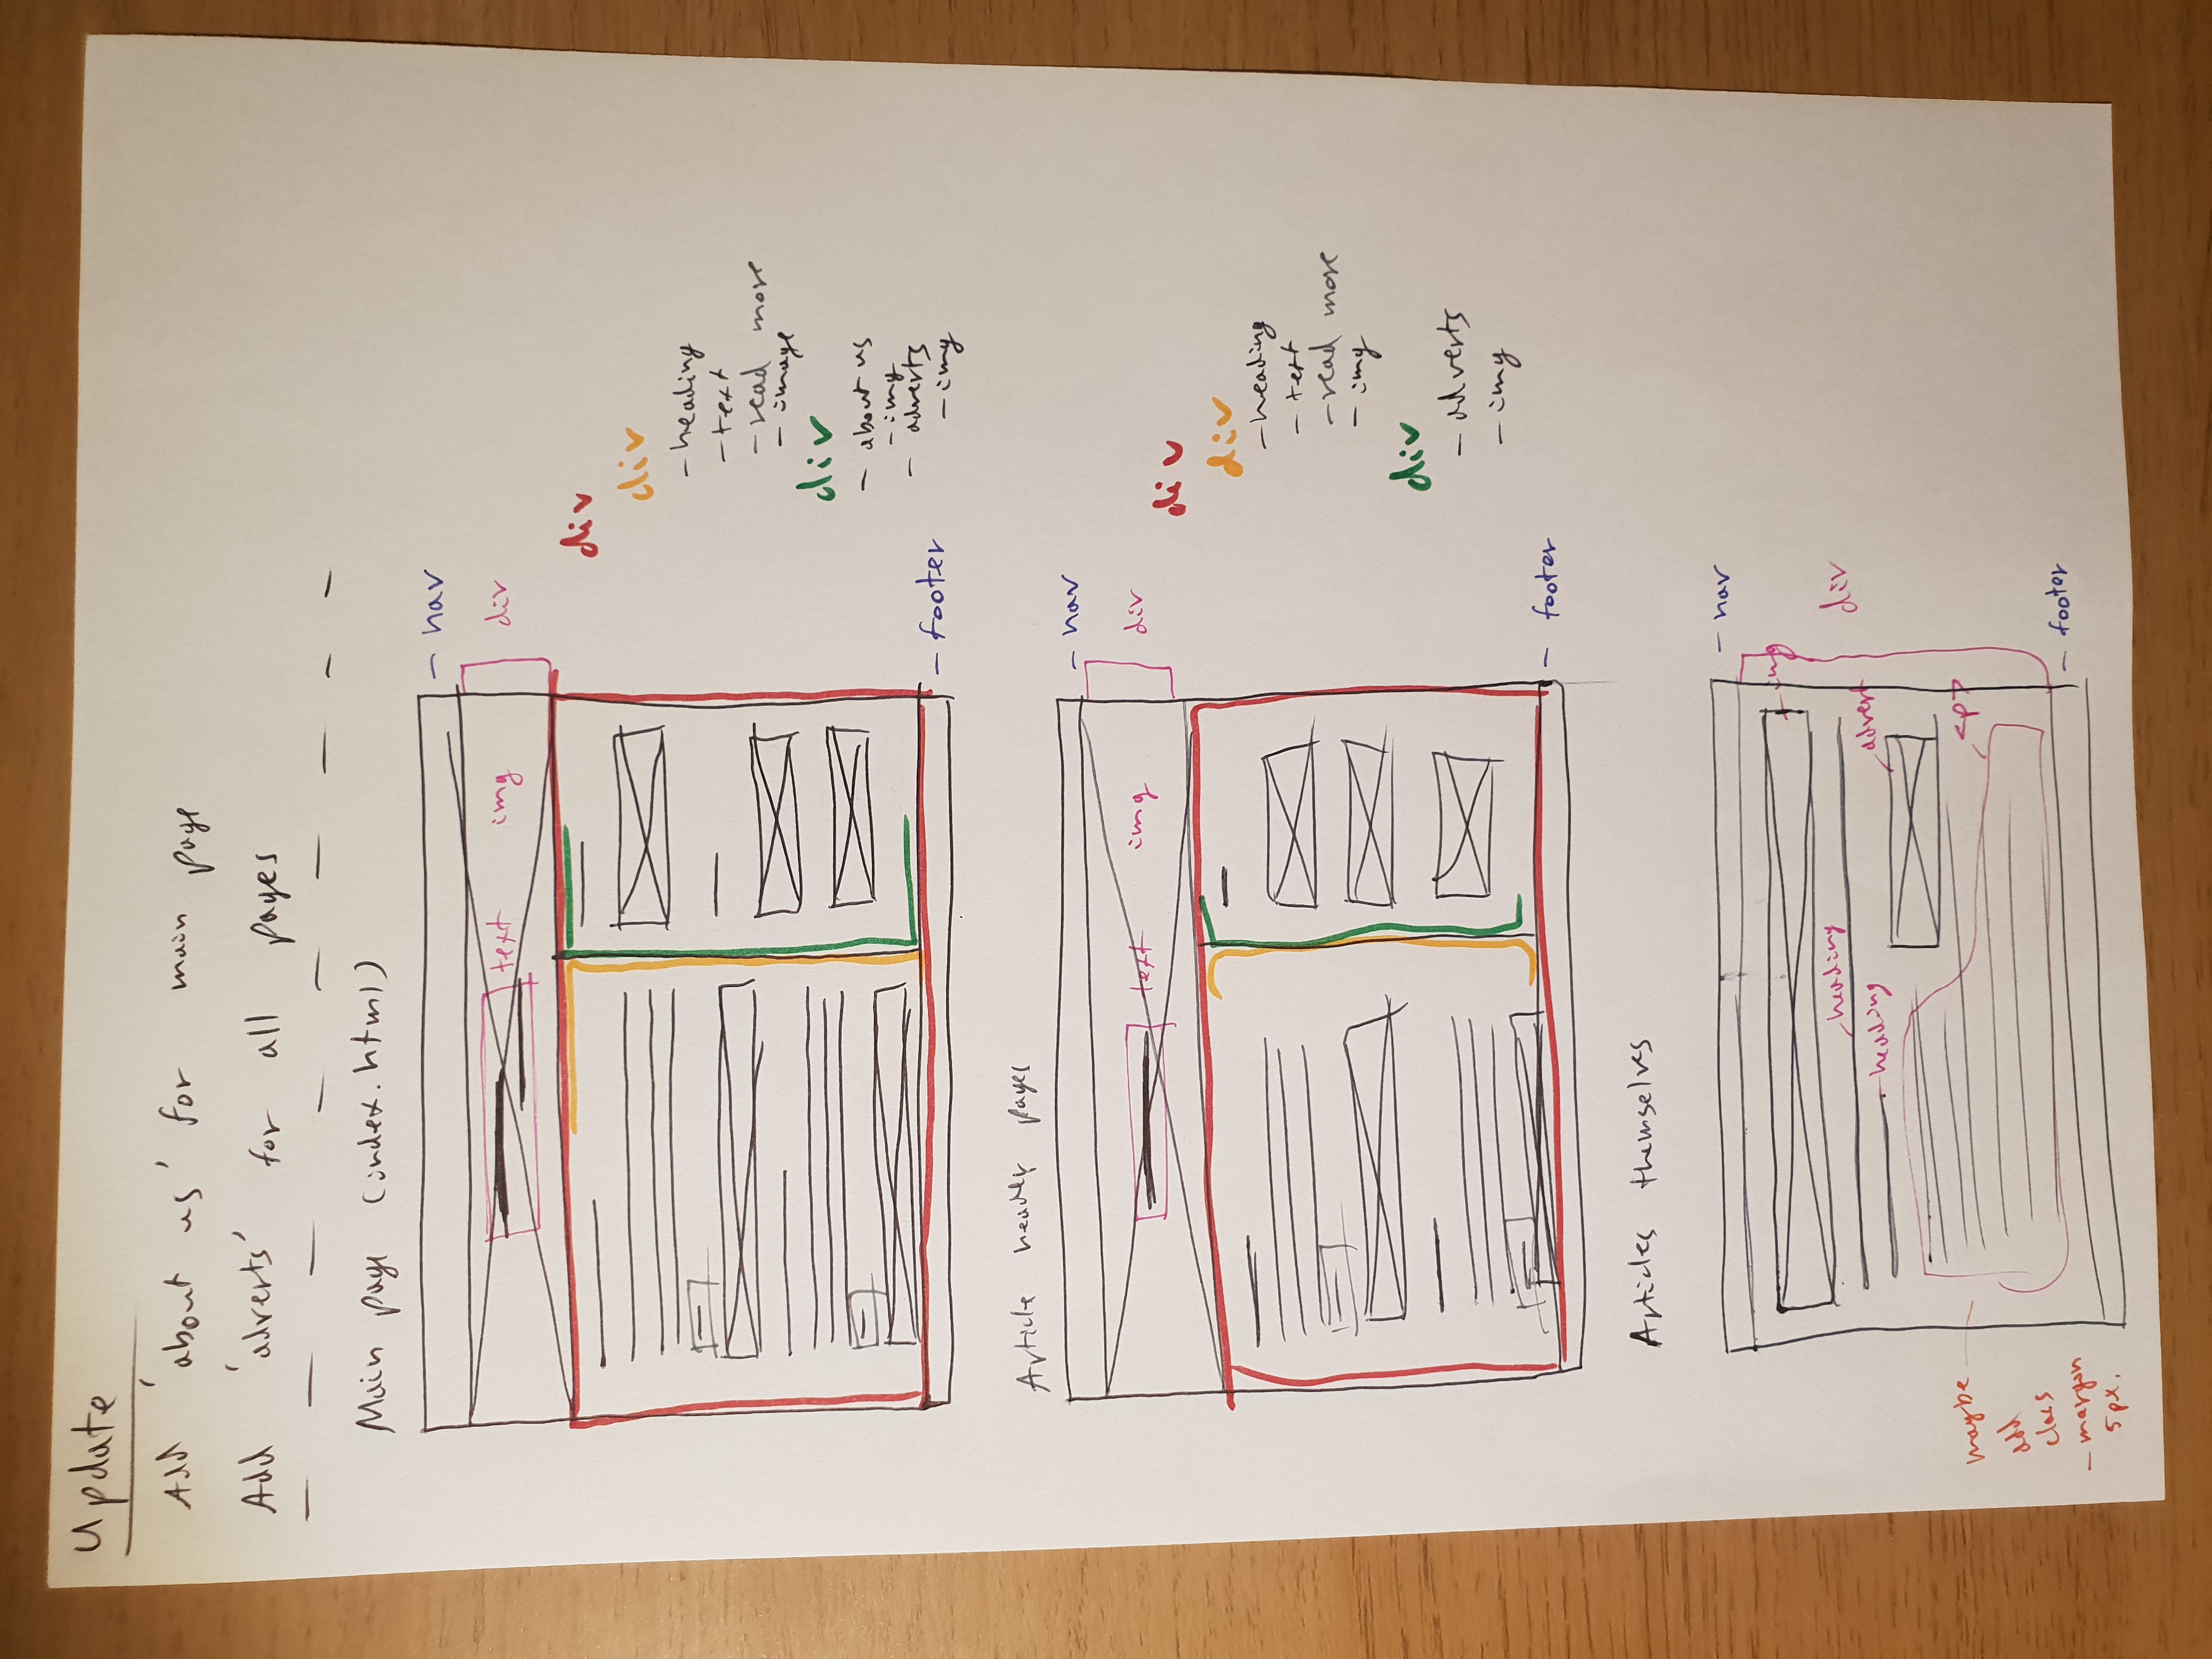 Update
Add 'about us' for main page
Add 'adverts' for all pages
Main page (index.html)
- nav
text img div
div
div
- heading
- text
- read more
- image
div
- about us
- img
- adverts
- img
- footer
Article header pages
- nav
text img div
div
div
- heading
- text
- read more
- img
div
- adverts
- img
- footer
Articles themselves
- nav
img
heading
div
heading
advert
<p>
maybe
add
class
- margin
5px.
- footer